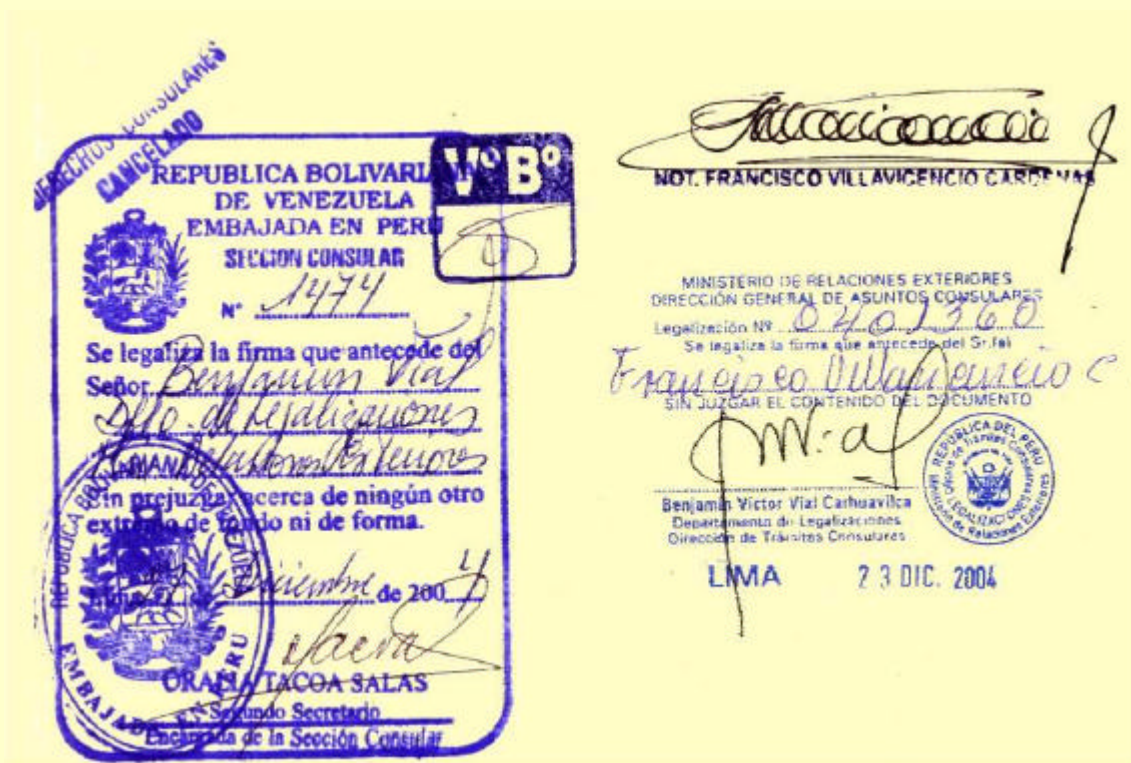 DERECHOS CONSULARES
CANCELADO
REPUBLICA BOLIVARIANA
DE VENEZUELA
EMBAJADA EN PERU
SECCION CONSULAR
VºBº
Nº 1474
Se legaliza la firma que antecede del
Señor Benjamin Vial
Dpto. de Legalizaciones
Relaciones Exteriores
Sin prejuzgar acerca de ningún otro
extremo de fondo ni de forma.
Diciembre de 2004
ORALIA TACOA SALAS
Segundo Secretario
Encargada de la Sección Consular
REPUBLICA BOLIVARIANA DE VENEZUELA
EMBAJADA EN PERU
NOT. FRANCISCO VILLAVICENCIO CARDENAS
MINISTERIO DE RELACIONES EXTERIORES
DIRECCIÓN GENERAL DE ASUNTOS CONSULARES
Legalización Nº 0401360
Se legaliza la firma que antecede del Sr.(a)
Francisco Villavicencio C
SIN JUZGAR EL CONTENIDO DEL DOCUMENTO
Benjamín Victor Vial Carhuavilca
Departamento de Legalizaciones
Dirección de Trámites Consulares
REPUBLICA DEL PERU
Oficina de Trámites Consulares
LEGALIZACIONES
Ministerio de Relaciones Exteriores
LIMA 23 DIC. 2004